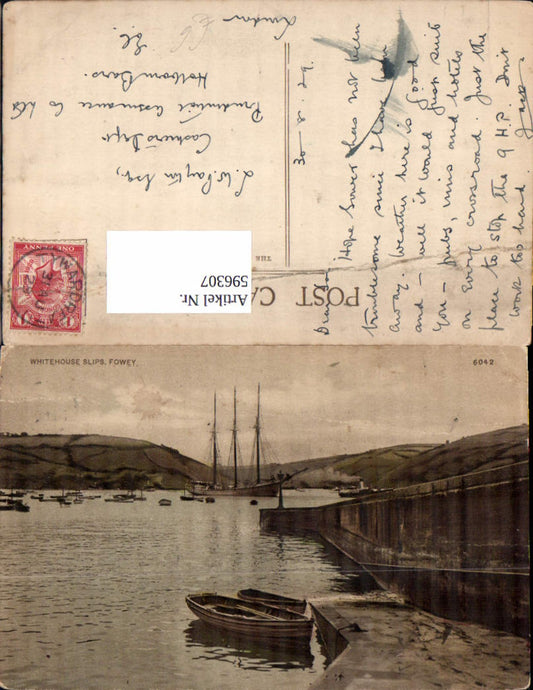 London
E.C.
Holborn Bars.
Prudential Assurance Co Ltd
Cashiers Dept
Esq,
30 . 8 . 29.
Hope Sower has not been
troublesome since I have been
away. Weather here is good
and – well it would just suit
you – pubs, inns and hotels
on every crossroad. Just the
place to stop the 9 H.P. Don't
work too hard.
Jack
POST CA
THE
ONE PENNY
Artikel Nr.
596307
WHITEHOUSE SLIPS, FOWEY.
6042